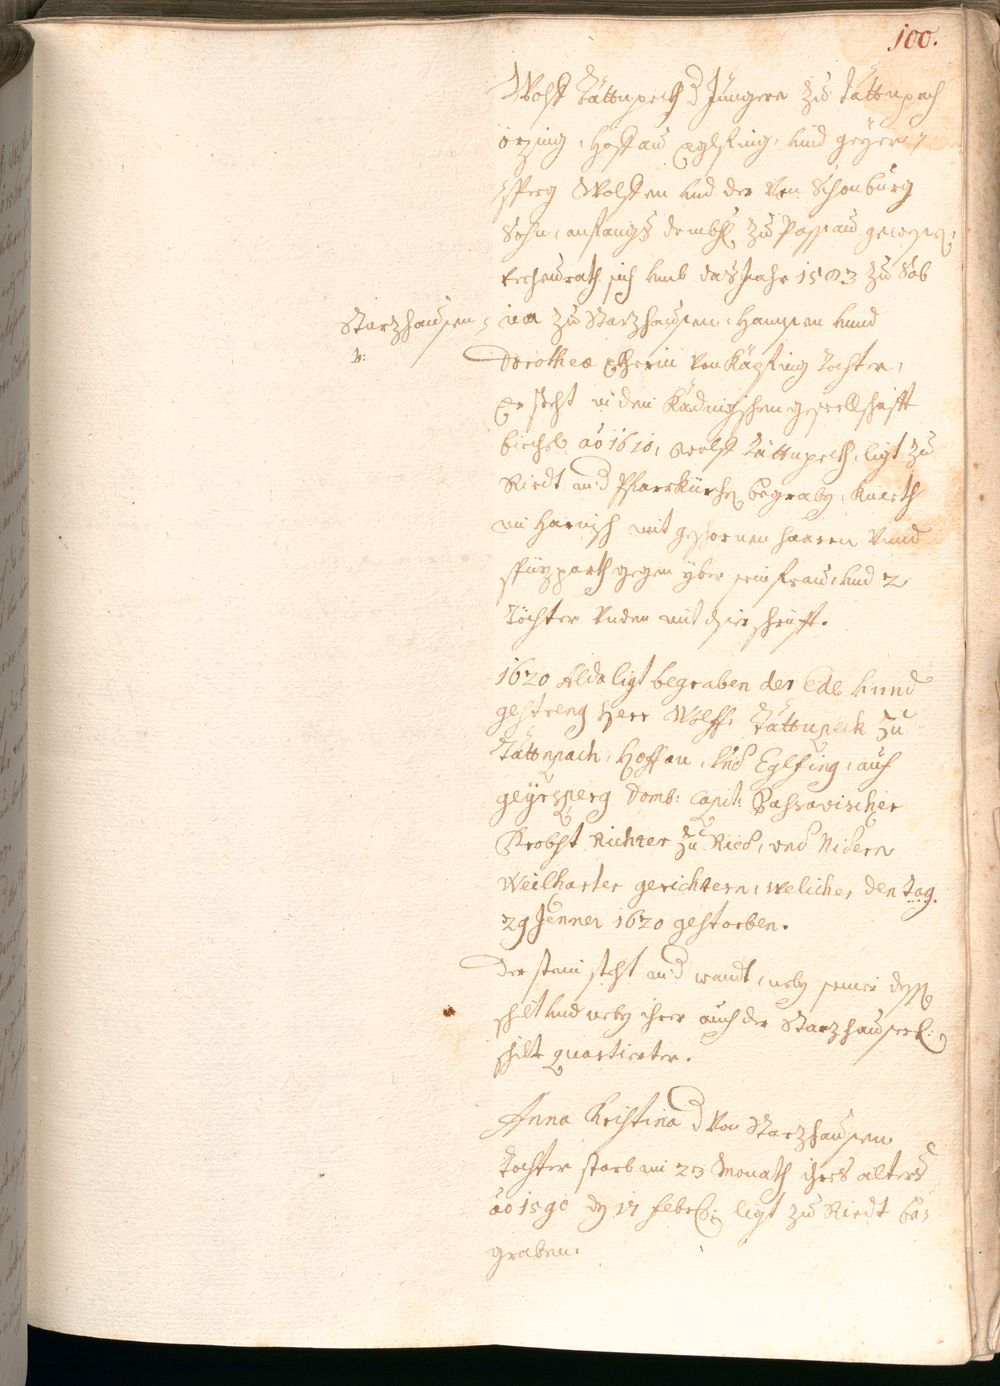 100.
Wolf Tättnpeckh d Jüngere zu Tättnpach
örzing, Hoffau Eglfing, und geyer¬
sperg Wolfen und der Von Schonburg
Sohn, anfangs domb: zu Passau gewesen,
verheurath sich umb das Jahr 1583 zu Sab
Starzhausen
ina zu Starzhausen, Hannsen unnd
1:
Dorothea von Käpfing Tochter,
Er steht in den gesellschafft
biechel ao 1610, Wolf Tättnpeckh, ligt zu
Riedt in d Pfarrkürchen begraben, kniett
im Harnisch mit geschornen haaren Vnnd
spüzparth gegen yber sein frau, und 2
Töchter Vnden mit diser schrüfft.
1620 Alda ligt begraben der Edl unnd
gestreng Herr Wolff. Tättnpeck zu
Tättnpach, Hoffau, und Eglfing, auf
geyrsperg Domb: Capit: Passavischer
Probst Richter zu Ried, und Nidern
Weilharter gerichtern, welicher den tag.
29 Jenner 1620 gestorben.
Der stein steht in d wandt, neben seiner
schilt und neben ihrer auch der Starzhauser:
schilt quartierter.
Anna Christina d Von Starzhausen
Tochter starb im 23 Monath ihres alters
ao 1590 den 17 febr: ligt zu Riedt be¬
graben.